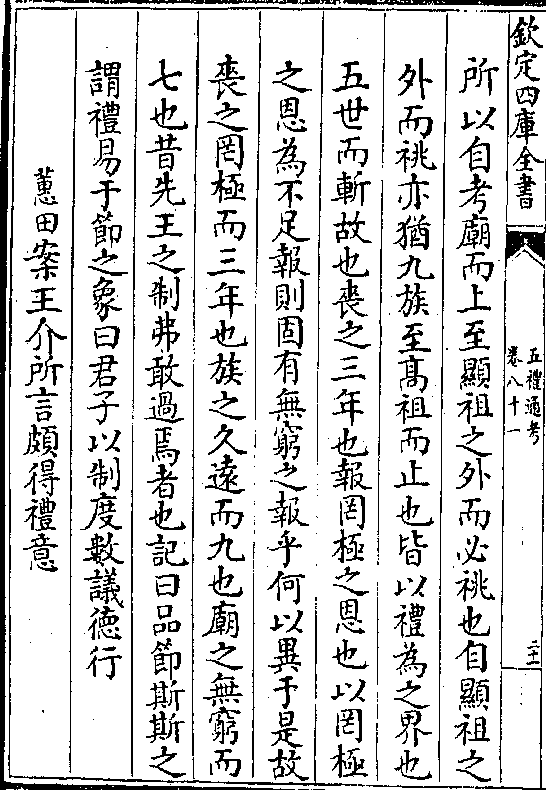 欽定四庫全書
五禮通考
卷八十一
二十一
所以自考廟而上至顯祖之外而必祧也自顯祖之
外而祧亦猶九族至高祖而止也皆以禮為之界也
五世而斬故也喪之三年也報罔極之恩也以罔極
之恩為不足報則固有無窮之報乎何以異于是故
喪之罔極而三年也族之久遠而九也廟之無窮而
七也昔先王之制弗敢過焉者也記曰品節斯斯之
謂禮易于節之象曰君子以制度數議徳行
蕙田案王介所言頗得禮意